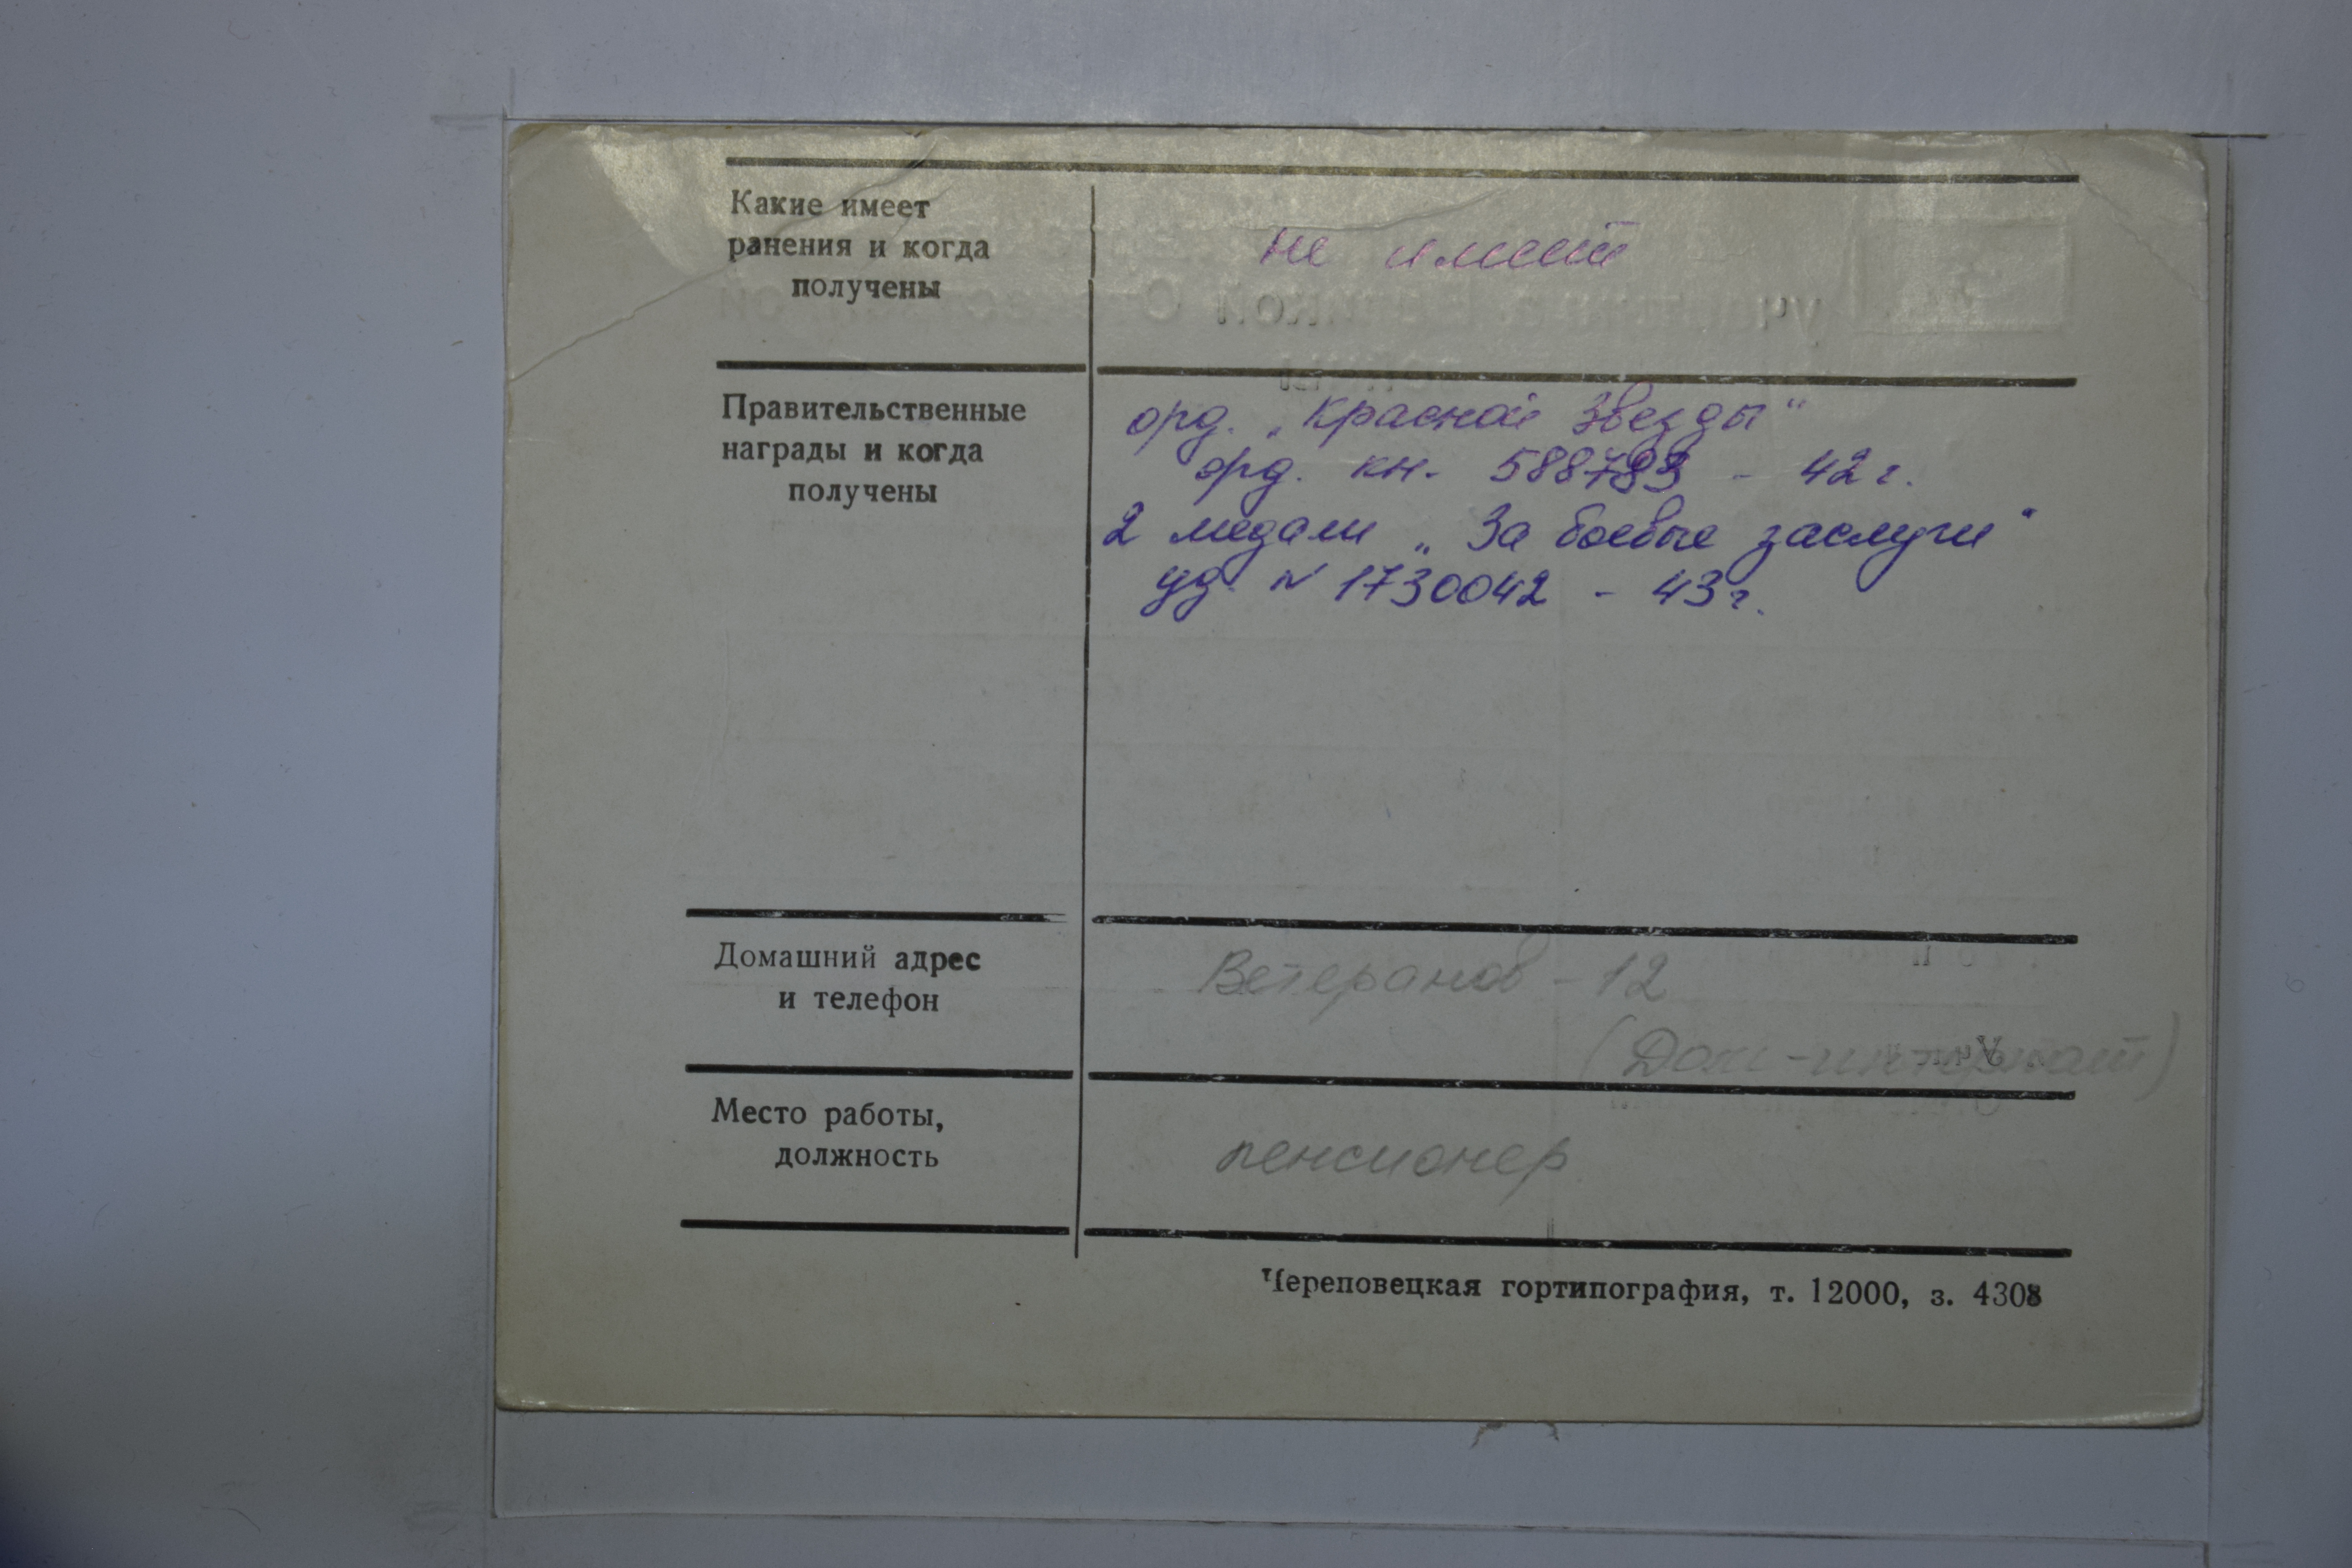 Какие имеет
ранения и когда
получены
не имеет
Правительственные
награды и когда
получены
орд. „Красной Звезды“
орд. кн. 588783 - 42 г.
2 медали „За боевые заслуги“
уд. № 1730042 - 43 г.
Домашний адрес
и телефон
Ветеранов - 12
(Дом-интернат)
Место работы,
должность
пенсионер
Череповецкая гортипография, т. 12000, з. 4308